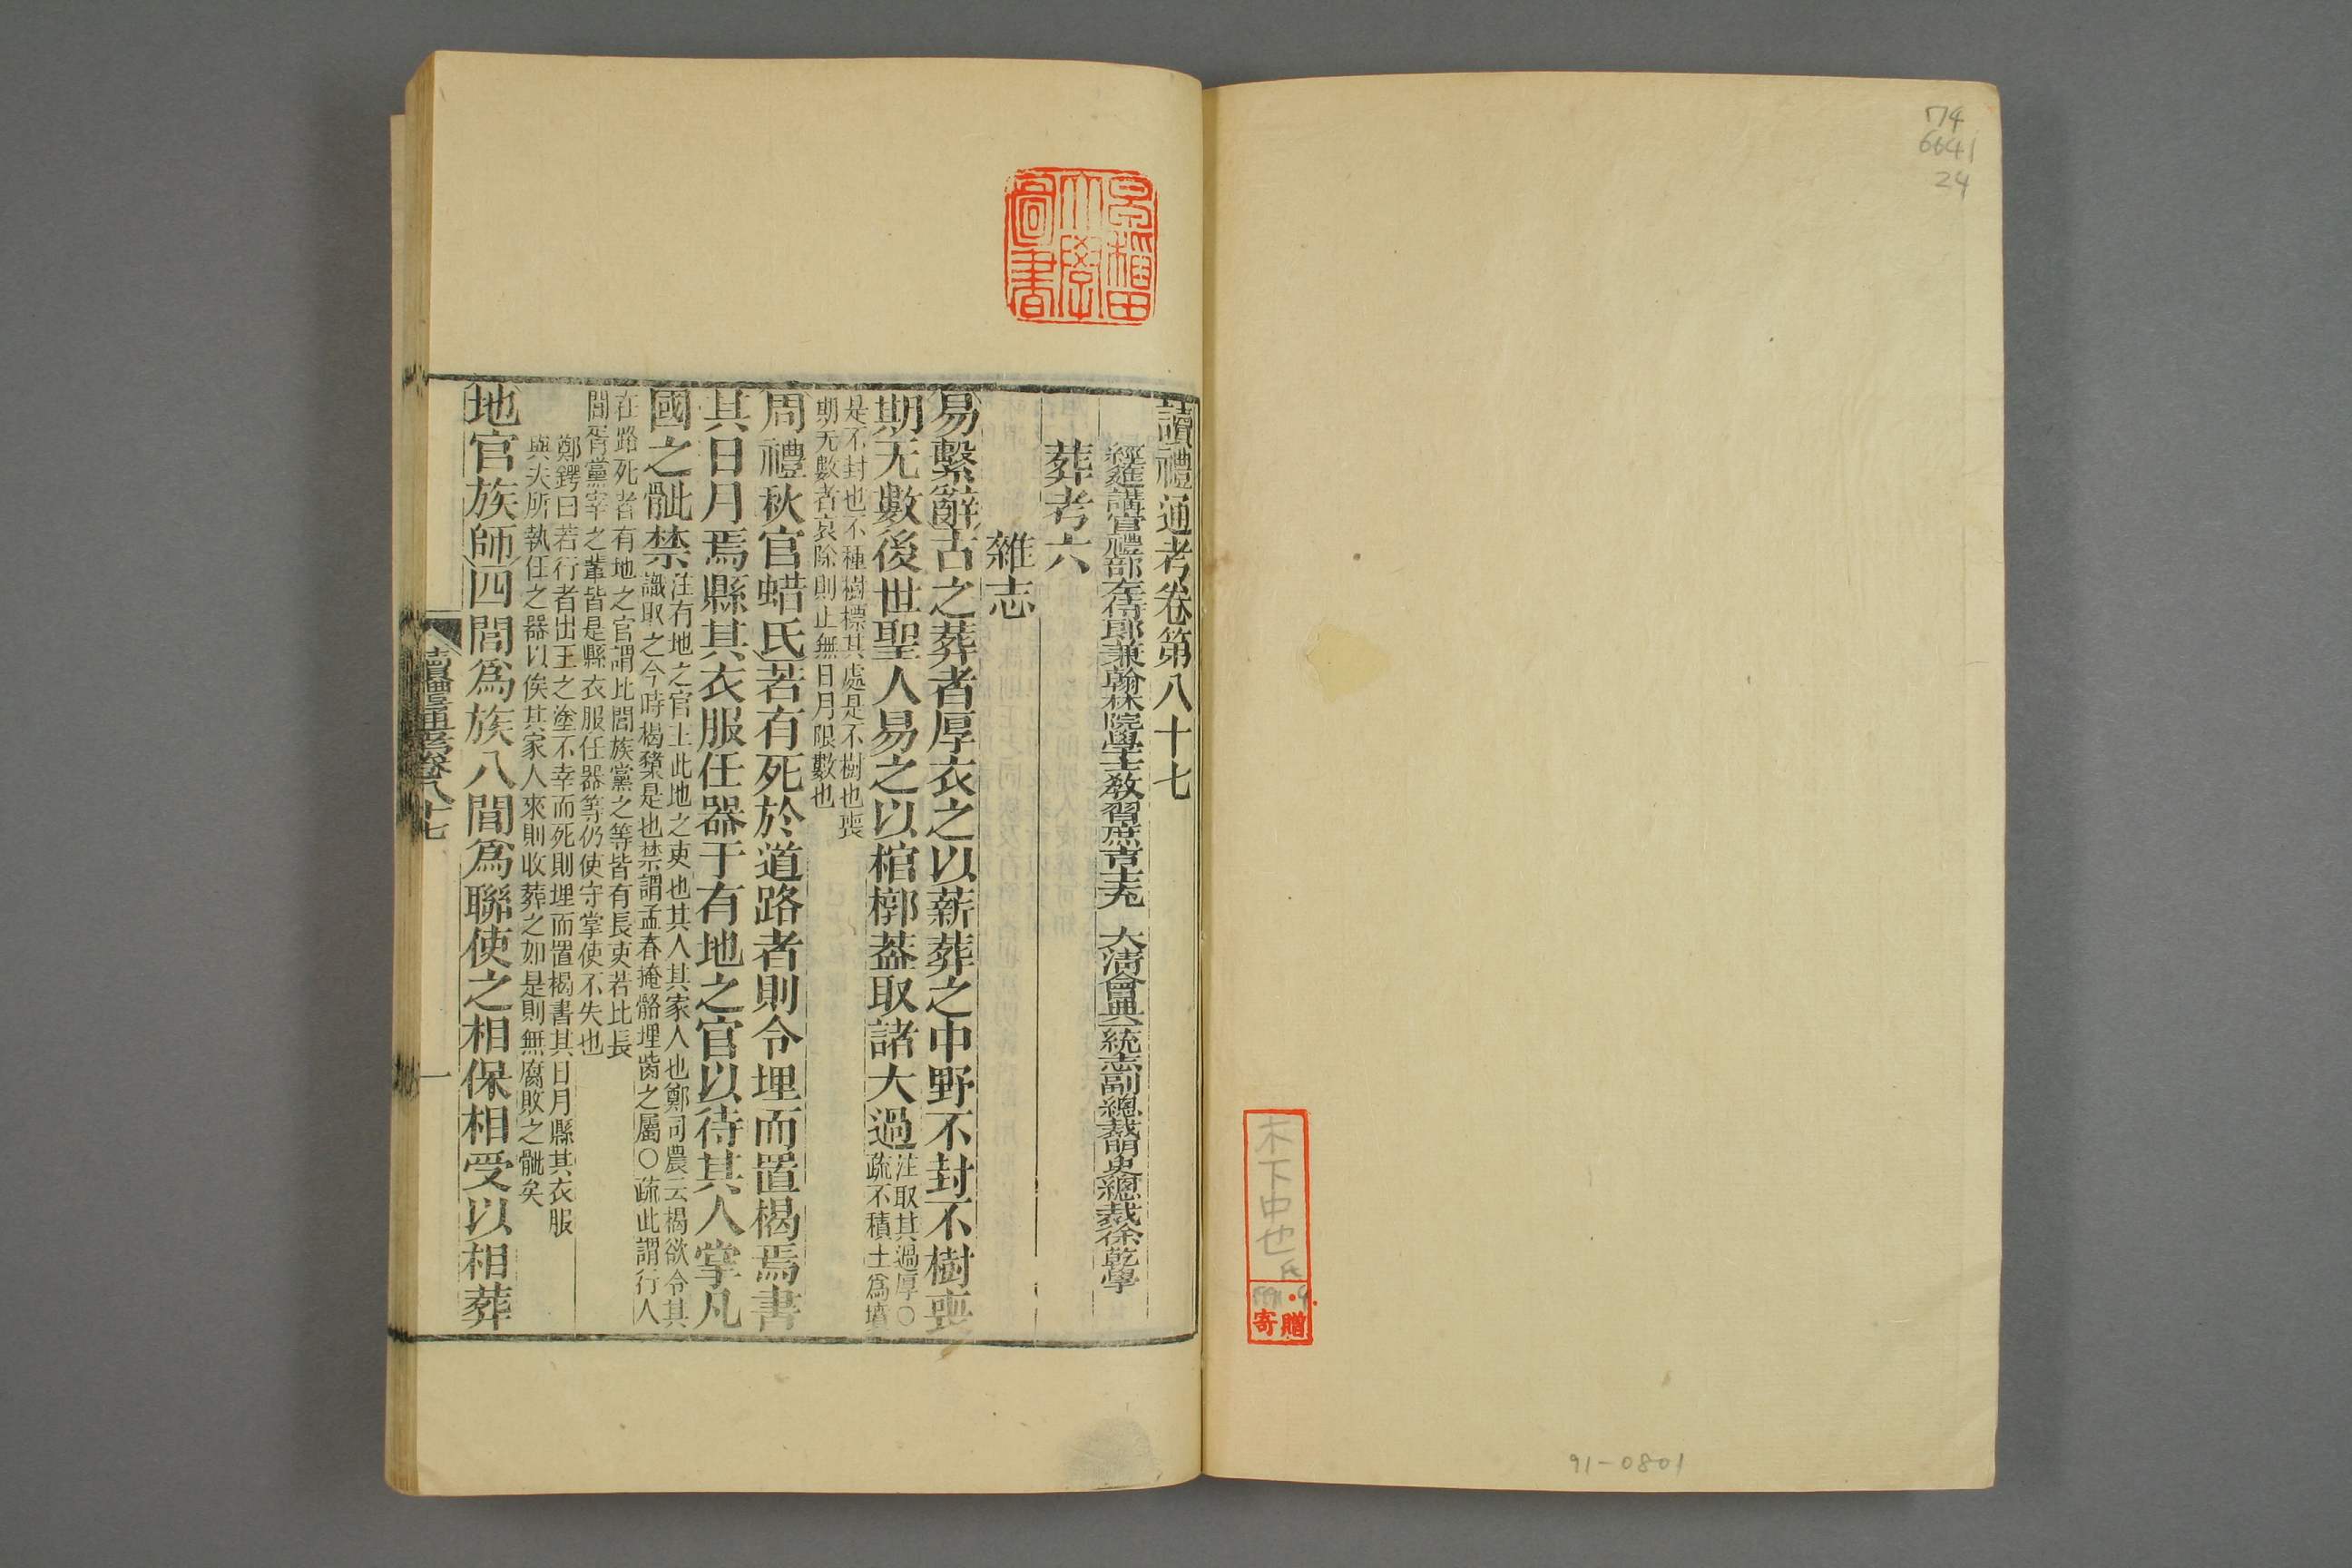 74
6641
24
木下中也氏
寄贈
91-0801
早稲田
大學
圖書
讀禮通考卷第八十七
經筵講官禮部左侍郎兼翰林院學士教習庶吉士充 大清會典一統志副總裁明史總裁徐乾學
葬考六
雜志
易繫辭古之葬者厚衣之以薪葬之中野不封不樹喪
期无數後世聖人易之以棺槨葢取諸大過
注取其過厚〇
疏不積土爲墳
是不封也不種樹標其處是不樹也喪
期无數者哀除則止無日月限數也
周禮秋官蜡氏若有死於道路者則令埋而置楬焉書
其日月焉縣其衣服任器于有地之官以待其人掌凡
國之骴禁
注有地之官主此地之吏也其人其家人也鄭司農云楬欲令其
識取之今時楬櫫是也禁謂孟春掩骼埋胔之屬〇疏此謂行人
在路死者有地之官謂比閭族黨之等皆有長吏若比長
閭胥黨宰之輩皆是縣衣服任器等仍使守掌使不失也
鄭鍔曰若行者出王之塗不幸而死則埋而置楬書其日月縣其衣服
與夫所執任之器以俟其家人來則收葬之如是則無腐敗之骴矣
地官族師四閭爲族八閭爲聯使之相保相受以相葬
讀禮通考卷八十七
一